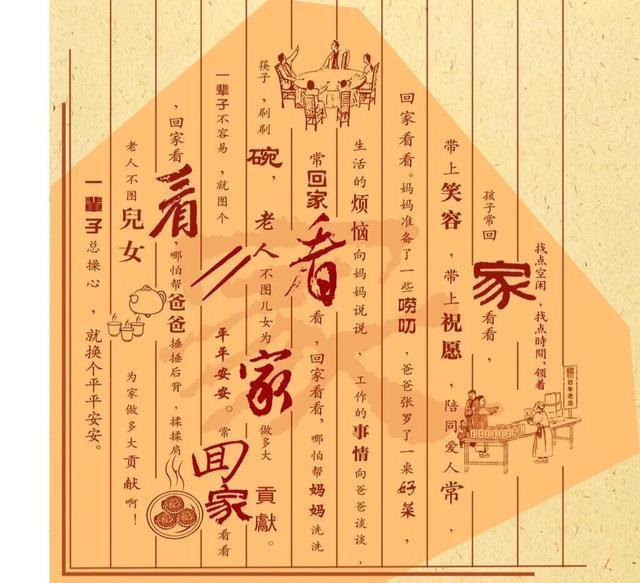 找点空闲,找点時間,领着
孩子常回家看看,
带上笑容,带上祝愿,陪同爱人常,
回家看看。妈妈准备了一些唠叨,爸爸张罗了一桌好菜,
生活的烦恼向妈妈说说,工作的事情向爸爸谈谈,
常回家看看,回家看看,哪怕帮妈妈洗洗
筷子,刷刷碗,老人不图儿女为家做多大貢獻。
一辈子不容易,就图个平平安安。常回家看看
,回家看看,哪怕帮爸爸捶捶后背,揉揉肩
老人不图兒女为家做多大贡献啊!
一輩子总操心,就换个平平安安。
百年老店